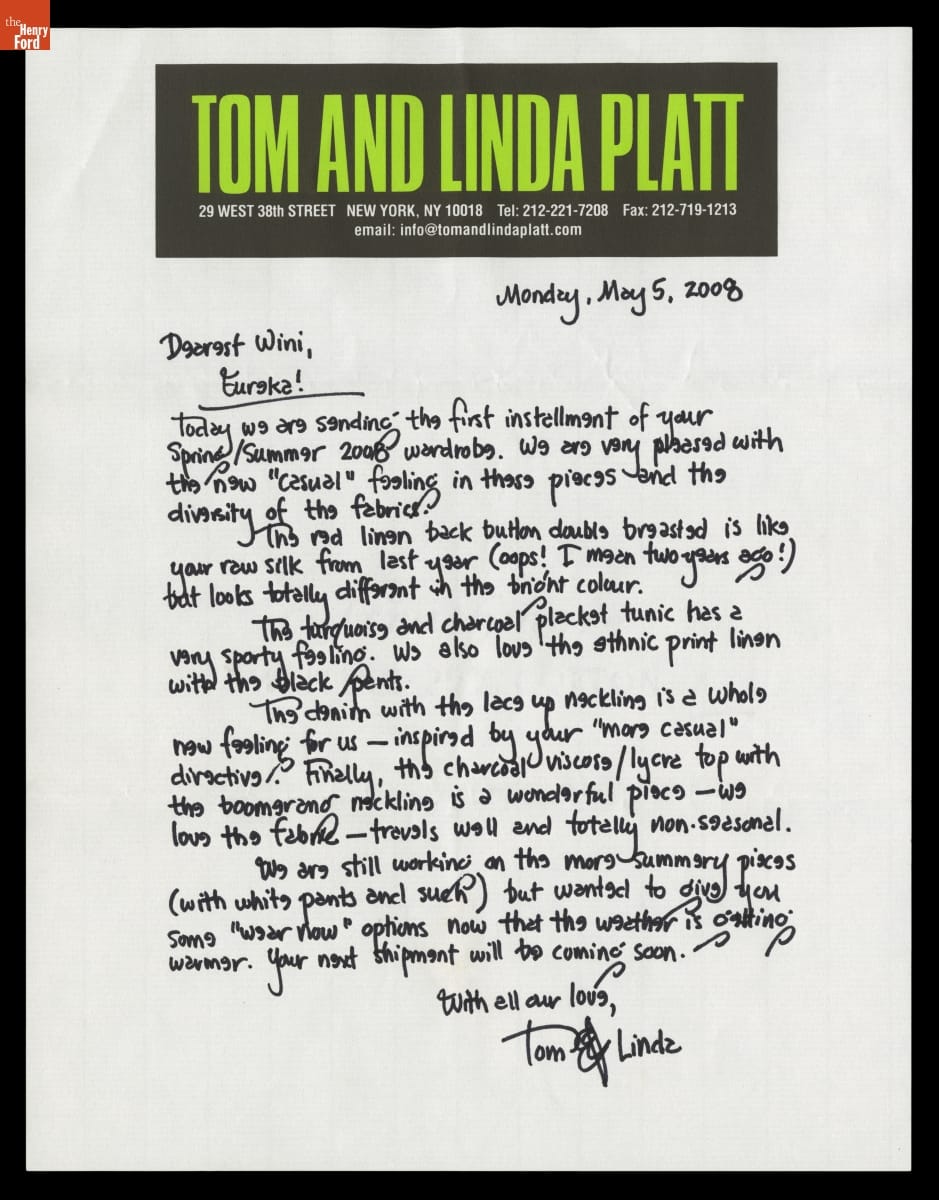 the
Henry
Ford
TOM AND LINDA PLATT
29 WEST 38th STREET NEW YORK, NY 10018 Tel: 212-221-7208 Fax: 212-719-1213
email: info@tomandlindaplatt.com
Monday, May 5, 2008
Dearest Wini,
Eureka!
Today we are sending the first installment of your
Spring/Summer 2008 wardrobe. We are very pleased with
the new "casual" feeling in these pieces and the
diversity of the fabrics.
The red linen back button double breasted is like
your raw silk from last year (oops! I mean two years ago!)
but looks totally different in the bright colour.
The turquoise and charcoal placket tunic has a
very sporty feeling. We also love the ethnic print linen
with the black pants.
The denim with the lace up neckline is a whole
new feeling for us — inspired by your "more casual"
directive! Finally, the charcoal viscose/lycra top with
the boomerang neckline is a wonderful piece — we
love the fabric — travels well and totally non-seasonal.
We are still working on the more summery pieces
(with white pants and such) but wanted to give you
some "wear now" options now that the weather is getting
warmer. Your next shipment will be coming soon.
With all our love,
Tom & Linda